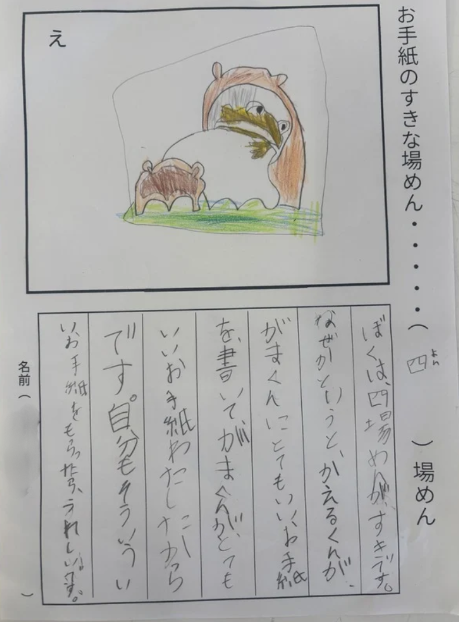 お手紙のすきな場めん・・・・・・(四)場めん
よん
え
ぼくは、四場めんが、すきです。
なぜかというと、かえるくんが、
がまくんにとてもいいお手紙
を、書いてがまくんが、とても
いいお手紙わたしたから
です。自分もそういうい
いお手紙をもらったら、うれしいです。
名前( )